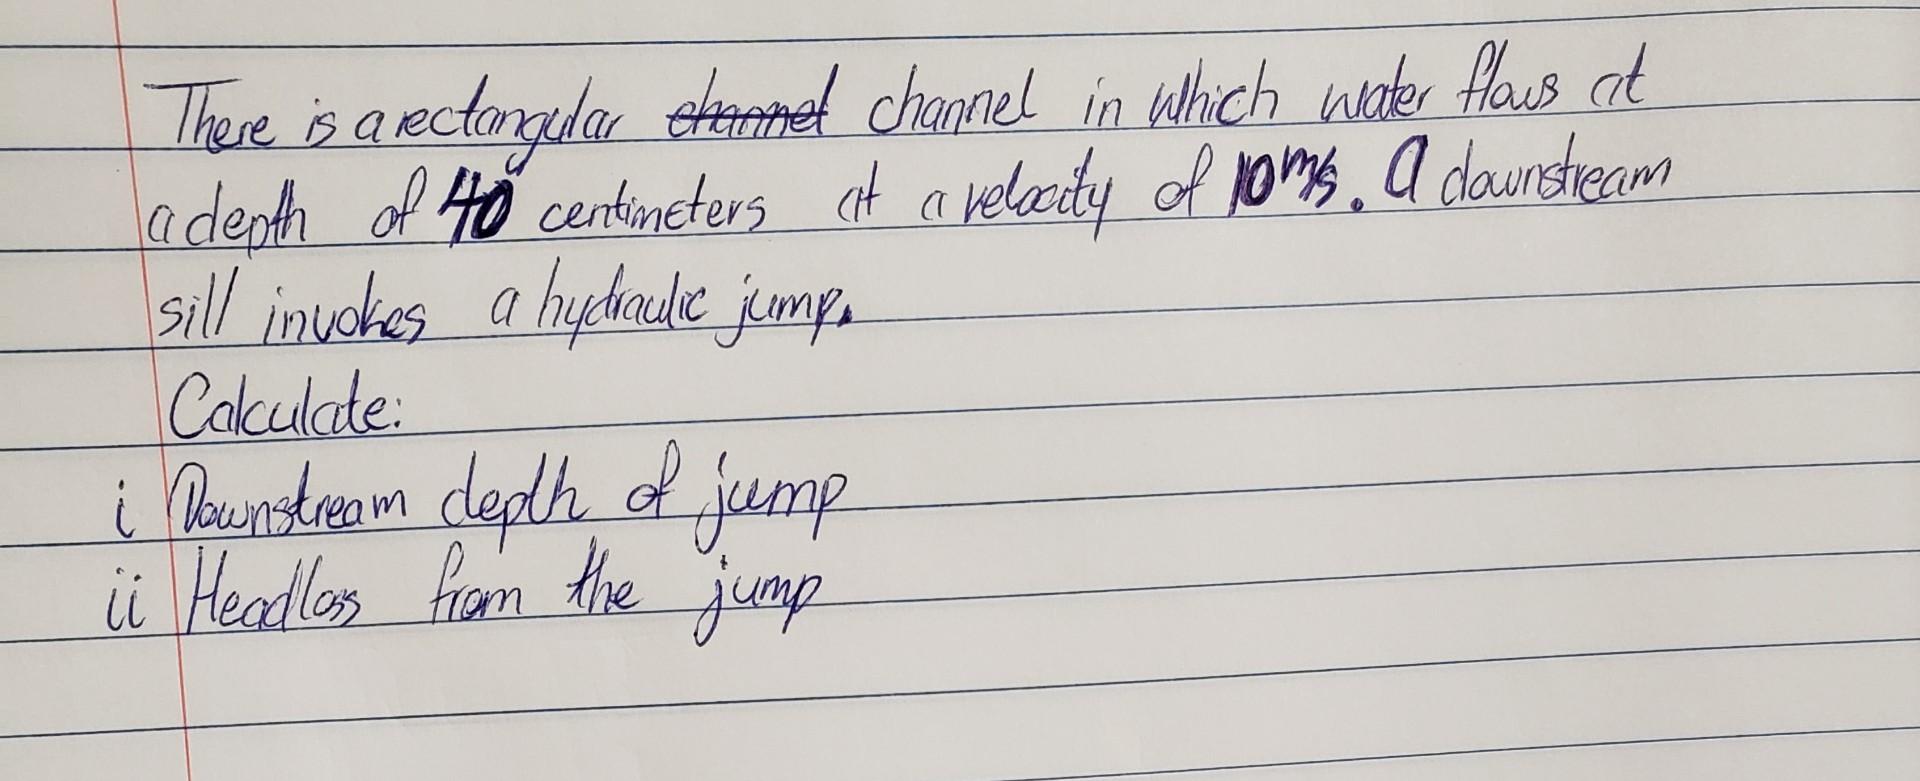 There is a rectangular channel channel in which water flows at
a depth of 40 centimeters at a velocity of 10 m/s. A downstream
sill invokes a hydraulic jump.
Calculate:
i Downstream depth of jump
ii Headloss from the jump